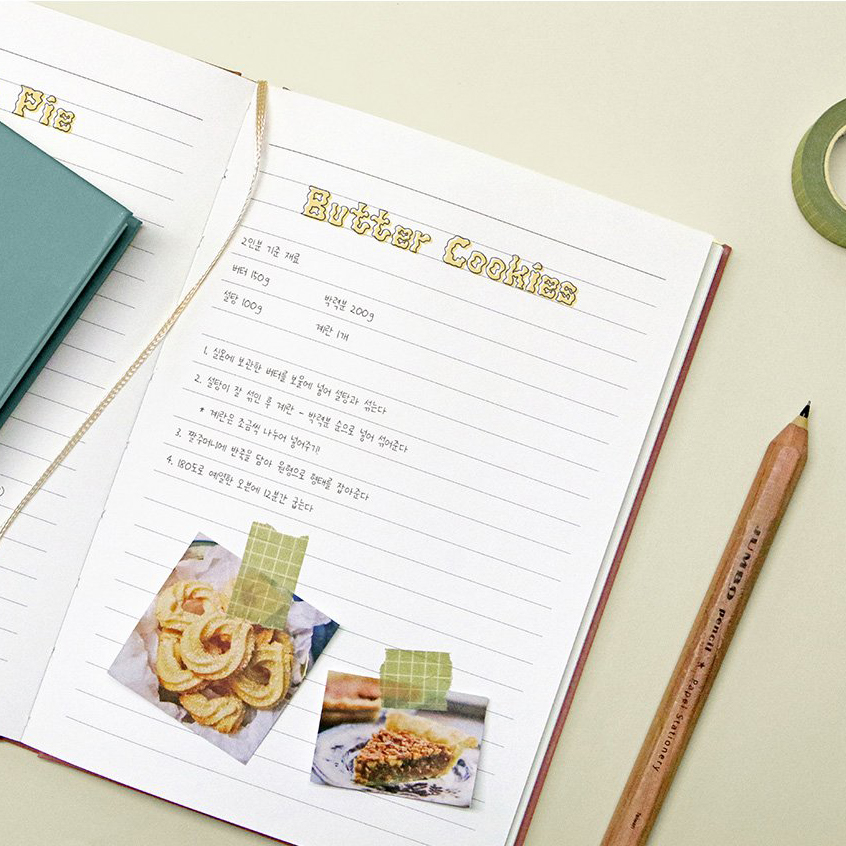 Pie
Butter Cookies
2인분 기준 재료
버터 150g
박력분 200g
설탕 100g
계란 1개
1. 실온에 보관한 버터를 보울에 넣어 설탕과 섞는다
2. 설탕이 잘 섞인 후 계란 - 박력분 순으로 넣어 섞어준다
* 계란은 조금씩 나누어 넣어주기!
3. 짤주머니에 반죽을 담아 원형으로 형태를 잡아준다
4. 180도로 예열한 오븐에 12분간 굽는다
JUMBO pencil ★ Papel Stationery
Taiwan